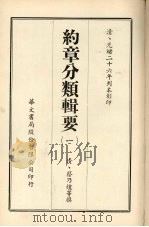 清、光緒二十六年刊本影印
約章分類輯要
一
清、蔡乃煌等撰
華文書局股份有限公司印行